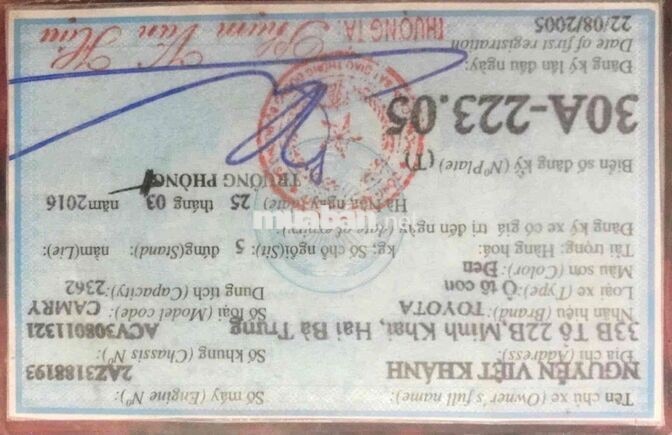 Tên chủ xe (Owner's full name): Số máy (Engine Nº)
NGUYỄN VIẾT KHÁNH 2AZ3188193
Địa chỉ (Address): Số khung (Chassis Nº)
33B Tổ 22B,Minh Khai, Hai Bà Trưng ACV308011321
Nhãn hiệu (Brand): TOYOTA Số loại (Model code): CAMRY
Loại xe (Type): Ô tô con Dung tích (Capacity): 2362
Màu sơn (Color): Đen
Tải trọng: Hàng hoá: kg; Số chỗ ngồi(Sit): 5 đứng(Stand): nằm(Lie):
Đăng ký xe có giá trị đến ngày (date of expiry)
Hà Nội, ngày (date) 25 tháng 03 năm 2016
Biển số đăng ký (NºPlate) (T) TRƯỞNG PHÒNG
30A-223.05
Đăng ký lần đầu ngày:
Date of first registration
22/08/2005 THƯỢNG TÁ: Phạm Văn Hậu
muaban.net